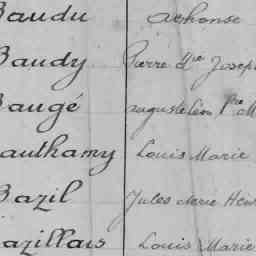 Baudu Alphonse
Baudy Pierre Joseph
Baugé auguste Léon Pre M
authamy Louis Marie
Bazil Jules Marie Hen
azillais Louis Marie